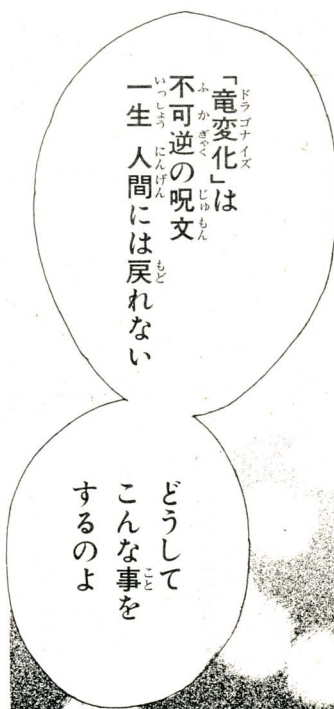 「竜変化」は
不可逆の呪文
一生 人間には戻れない
どうして
こんな事を
するのよ